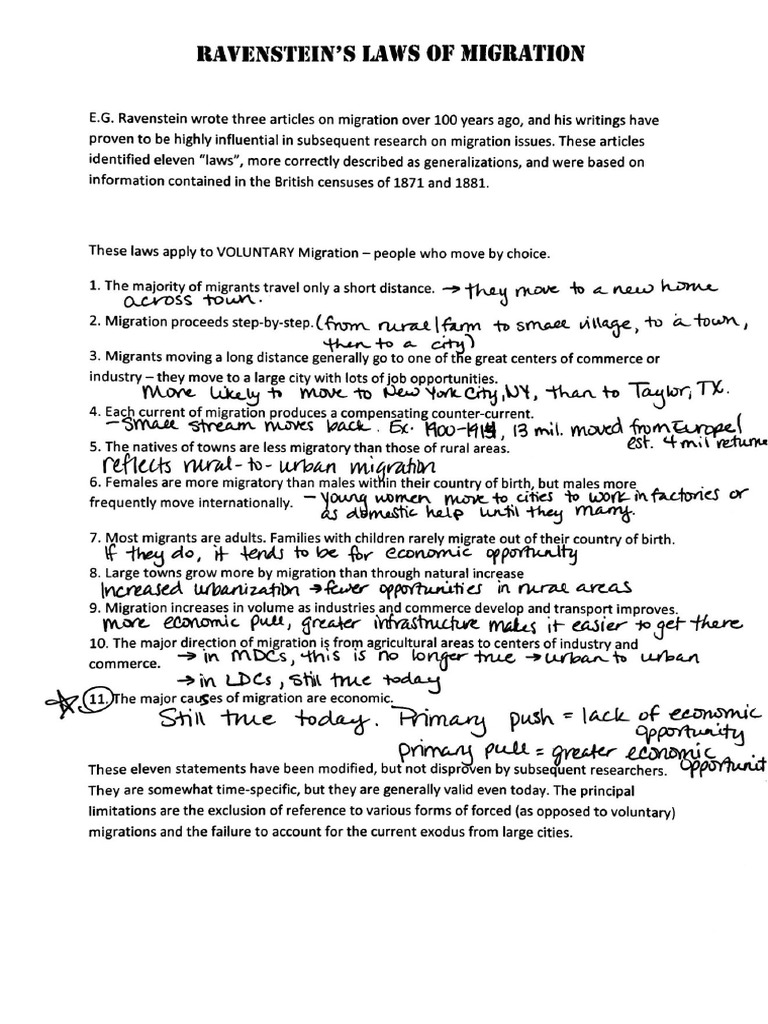 RAVENSTEIN'S LAWS OF MIGRATION
E.G. Ravenstein wrote three articles on migration over 100 years ago, and his writings have
proven to be highly influential in subsequent research on migration issues. These articles
identified eleven "laws", more correctly described as generalizations, and were based on
information contained in the British censuses of 1871 and 1881.
These laws apply to VOLUNTARY Migration – people who move by choice.
1. The majority of migrants travel only a short distance. → they move to a new home
across town.
2. Migration proceeds step-by-step. (from rural/farm to small village, to a town,
then to a city)
3. Migrants moving a long distance generally go to one of the great centers of commerce or
industry – they move to a large city with lots of job opportunities.
More likely to move to New York City, NY, than to Taylor, TX.
4. Each current of migration produces a compensating counter-current.
– Small stream moves back. Ex. 1900-1914, 13 mil. moved from Europe/
est. 4 mil returne
5. The natives of towns are less migratory than those of rural areas.
reflects rural-to-urban migration
6. Females are more migratory than males within their country of birth, but males more
frequently move internationally. – Young women move to cities to work in factories or
as domestic help until they marry.
7. Most migrants are adults. Families with children rarely migrate out of their country of birth.
If they do, it tends to be for economic opportunity
8. Large towns grow more by migration than through natural increase
Increased urbanization → fewer opportunities in rural areas
9. Migration increases in volume as industries and commerce develop and transport improves.
more economic pull, greater infrastructure makes it easier to get there
10. The major direction of migration is from agricultural areas to centers of industry and
commerce. → in MDCs, this is no longer true → urban to urban
→ in LDCs, still true today
11. The major causes of migration are economic.
Still true today. Primary push = lack of economic
opportunity
primary pull = greater economic
opportunit
These eleven statements have been modified, but not disproven by subsequent researchers.
They are somewhat time-specific, but they are generally valid even today. The principal
limitations are the exclusion of reference to various forms of forced (as opposed to voluntary)
migrations and the failure to account for the current exodus from large cities.